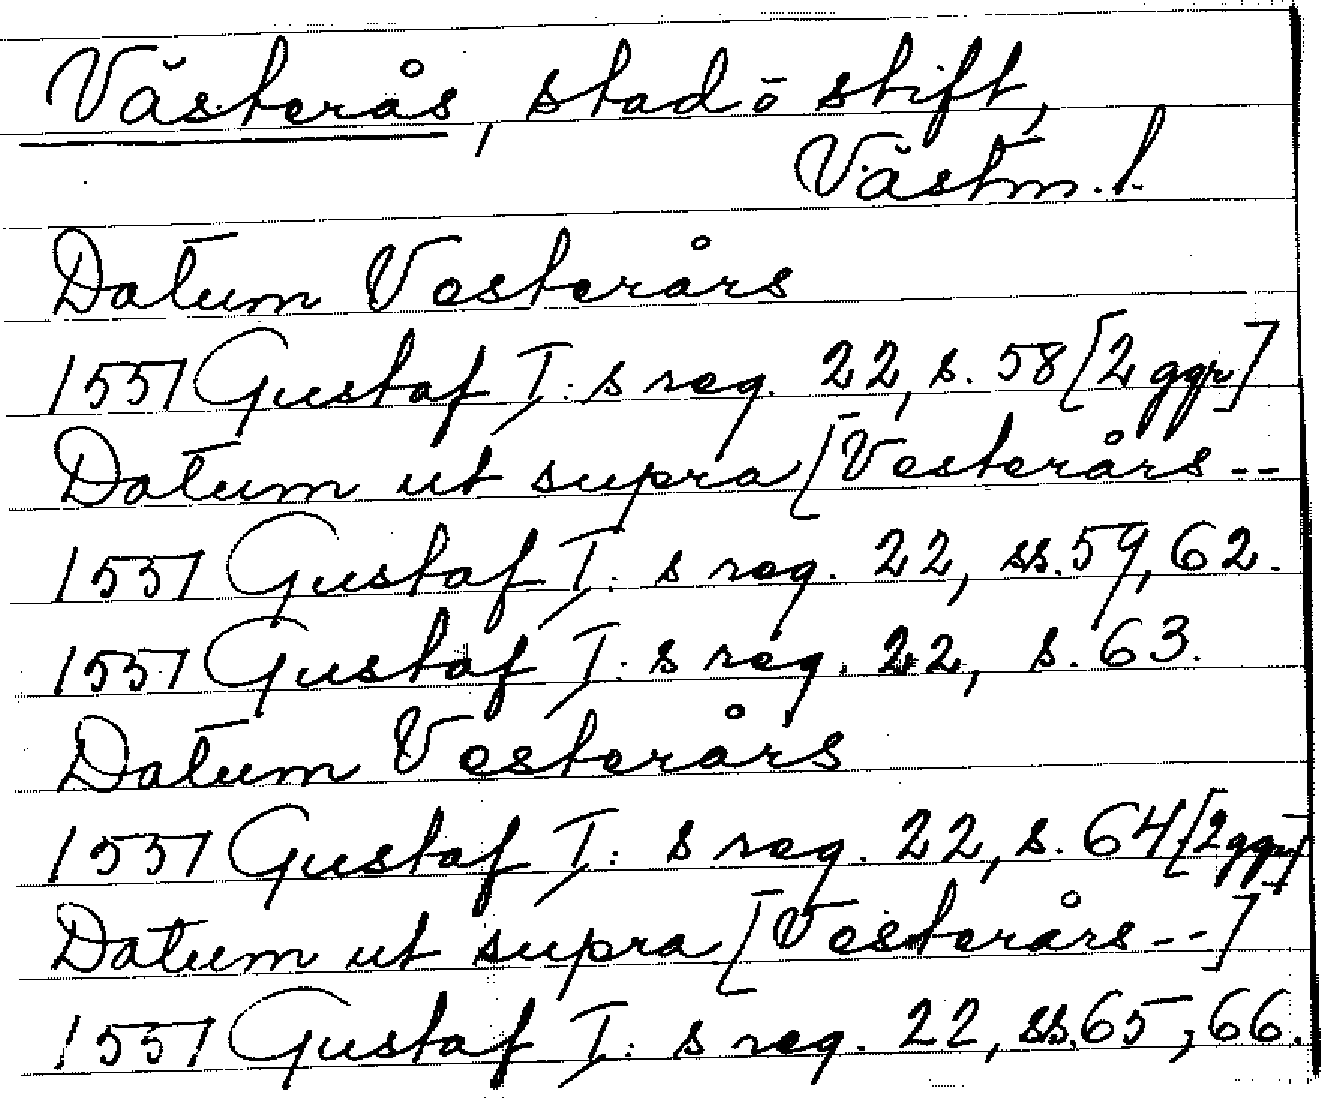 Västerås, stad o stift,
Västm. l.
Datum Vesterårs
1551 Gustaf I: s reg. 22, s. 58 [2 ggr]
Datum ut supra [Vesterårs --
1551 Gustaf I: s reg. 22, ss. 59, 62.
1551 Gustaf I: s reg. 22, s. 63.
Datum Vesterårs
1551 Gustaf I: s reg. 22, s. 64 [2 ggr]
Datum ut supra [Vesterårs --]
1551 Gustaf I: s reg. 22, ss. 65, 66.